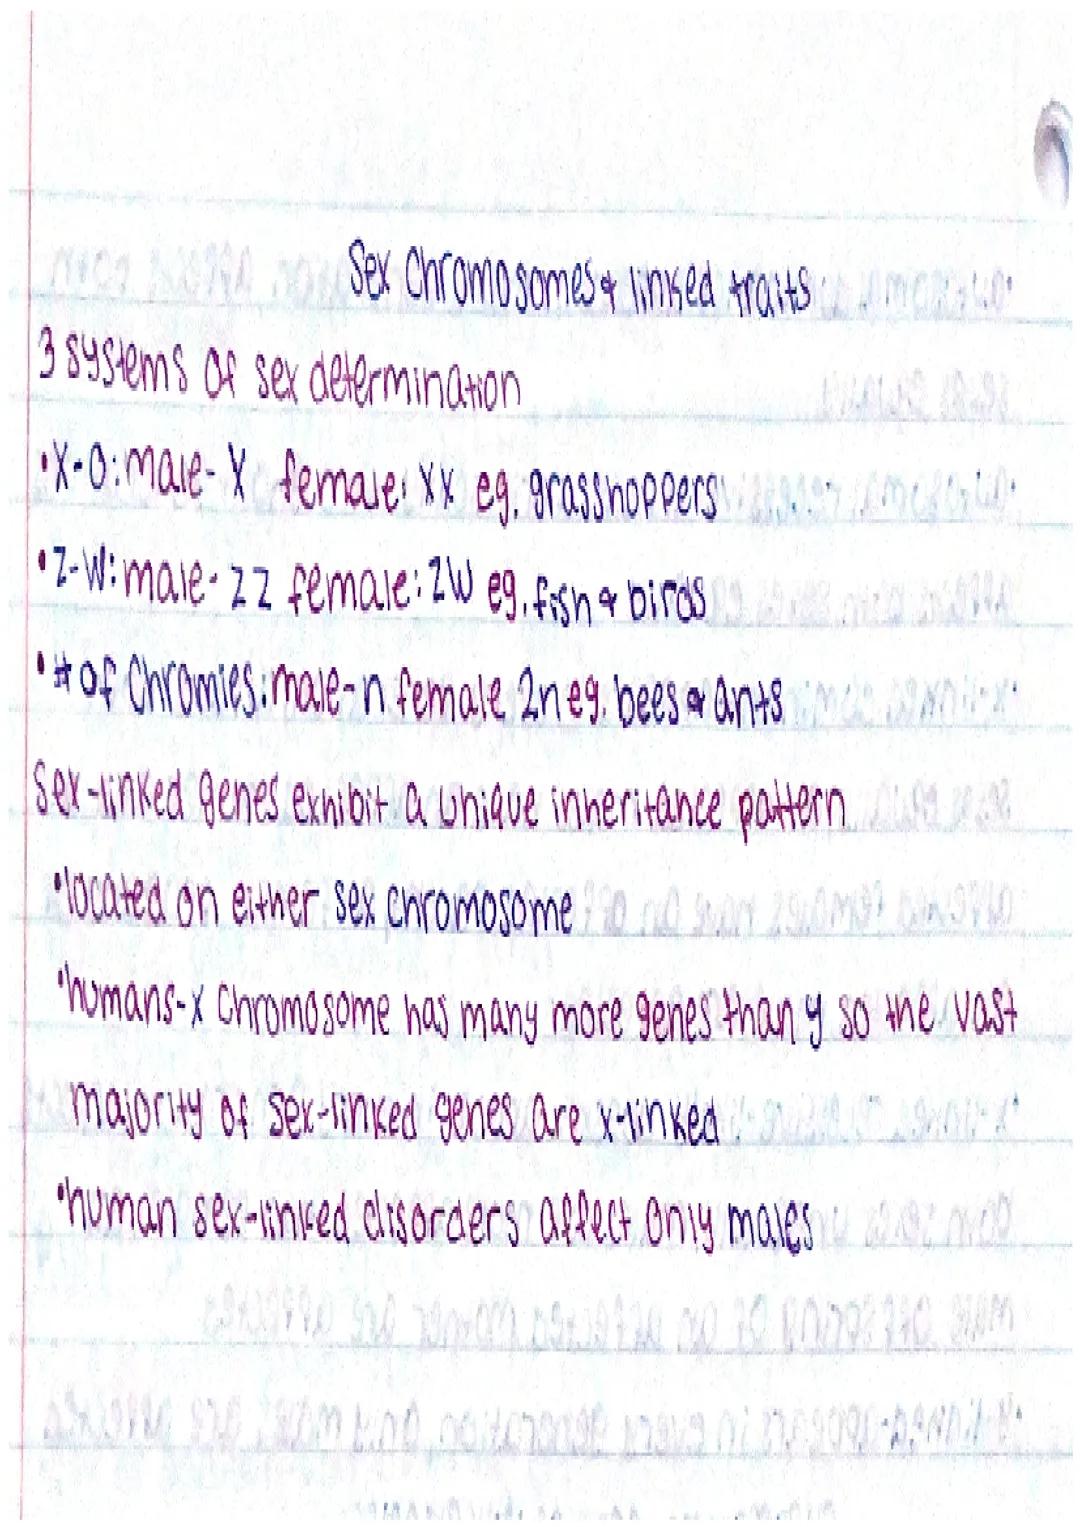 Sex Chromosomes & linked traits
3 systems of sex determination
•X-O: male- X female: XX eg. grasshoppers
•Z-W: male- ZZ female: ZW eg. fish & birds
•# of Chromies: male-n female 2n eg. bees & ants
Sex-linked genes exhibit a unique inheritance pattern
•located on either sex chromosome
•humans-x Chromosome has many more genes than y so the vast
majority of sex-linked genes are x-linked
•human sex-linked disorders affect only males